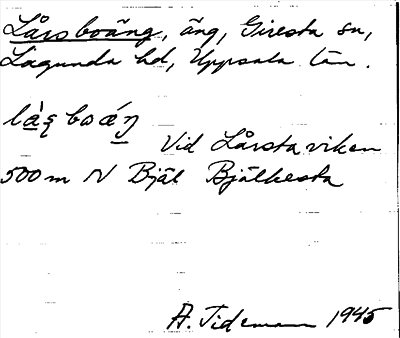 Lårsboäng, äng, Giresta sn,
Lagunda hd, Uppsala län.
là̱ʂboáŋ̱
Vid Lårstaviken
500 m N Bjäl Bjälkesta
A. Tideman 1945